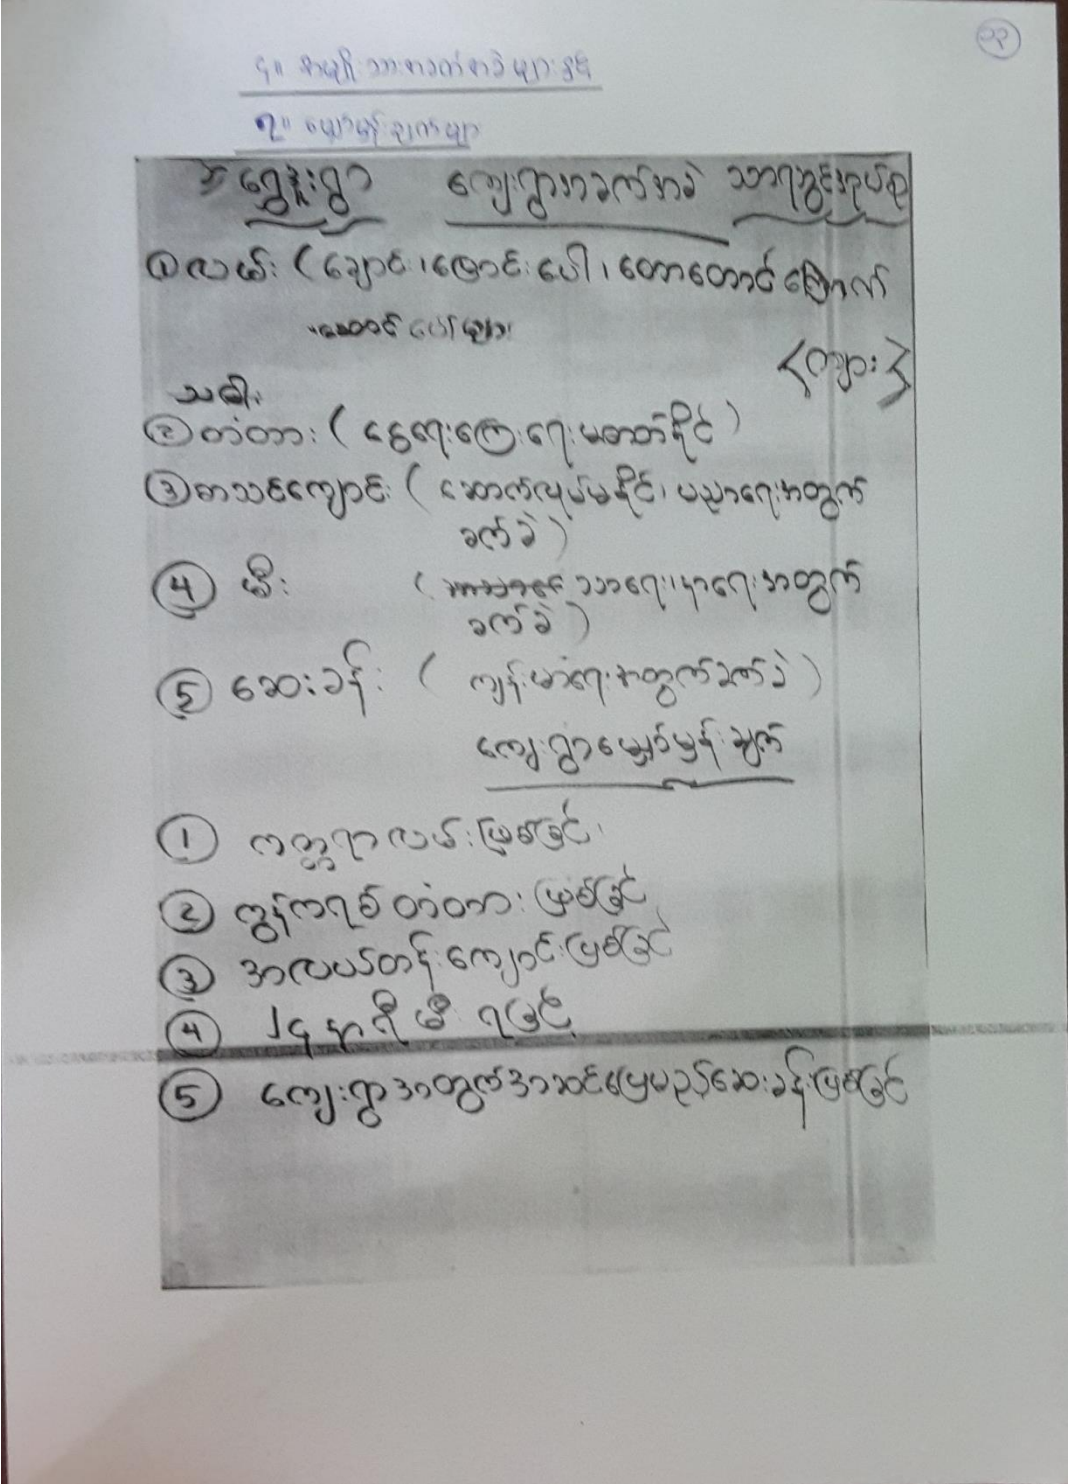 ၄။ အမျိုးသားအခက်အခဲများနှင့်
၅။ မျှော်မှန်းချက်များ
ကျေးရွာအခက်အခဲ
① လမ်း (ချောင်း၊မြောင်းပေါ၊ တောတောင်မြောက်
တောင်ပေါ်များ
<ကျား>
သမ္ဗီး
② တံတား (ရွှေ့ရေးကြေးရေးမတတ်နိုင်)
③ စာသင်ကျောင်း (ဆောက်လုပ်မနိုင်၊ ပညာရေးအတွက်
ခက်ခဲ)
④ မီး (သာရေး၊နာရေးအတွက်
ခက်ခဲ)
⑤ ဆေးခန်း (ကျန်းမာရေးအတွက်ခက်ခဲ)
ကျေးရွာမျှော်မှန်းချက်
① ကတ္တရာလမ်းဖြစ်ခြင်း
② ကွန်ကရစ်တံတားဖြစ်ခြင်
③ အလယ်တန်းကျောင်းဖြစ်ခြင်
④ ၂၄ နာရီ မီး ရခြင်
⑤ ကျေးရွာအတွက်အဆင်ပြေမည့်ဆေးခန်းဖြစ်ခြင်